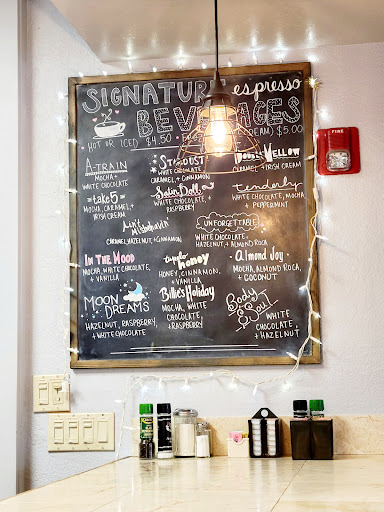 SIGNATURE espresso
BEVERAGES
HOT OR ICED $4.50
CREAM) $5.00
A-TRAIN
MOCHA +
WHITE CHOCOLATE
STARDUST
CARAMEL, + WHITE CHOCOLATE
MELLOW
CARAMEL, + IRISH CREAM
"take 5"
MOCHA, CARAMEL, +
IRISH CREAM
Satin Doll
WHITE CHOCOLATE, +
RASPBERRY
tenderly
WHITE CHOCOLATE, MOCHA
+ PEPPERMINT
Ain't Misbehavin'
CARAMEL, HAZELNUT, + CINNAMON
UNFORGETTABLE
WHITE CHOCOLATE,
HAZELNUT, + ALMOND ROCA
IN THE MOOD
MOCHA, WHITE CHOCOLATE,
+ VANILLA
honey
HONEY, CINNAMON,
+ VANILLA
Almond Joy
MOCHA, ALMOND ROCA,
+ COCONUT
MOON
DREAMS
HAZELNUT, RASPBERRY,
+ WHITE CHOCOLATE
Billie's Holiday
MOCHA, WHITE
CHOCOLATE,
+ RASPBERRY
Body
& Soul
WHITE
CHOCOLATE,
+ HAZELNUT
FIRE